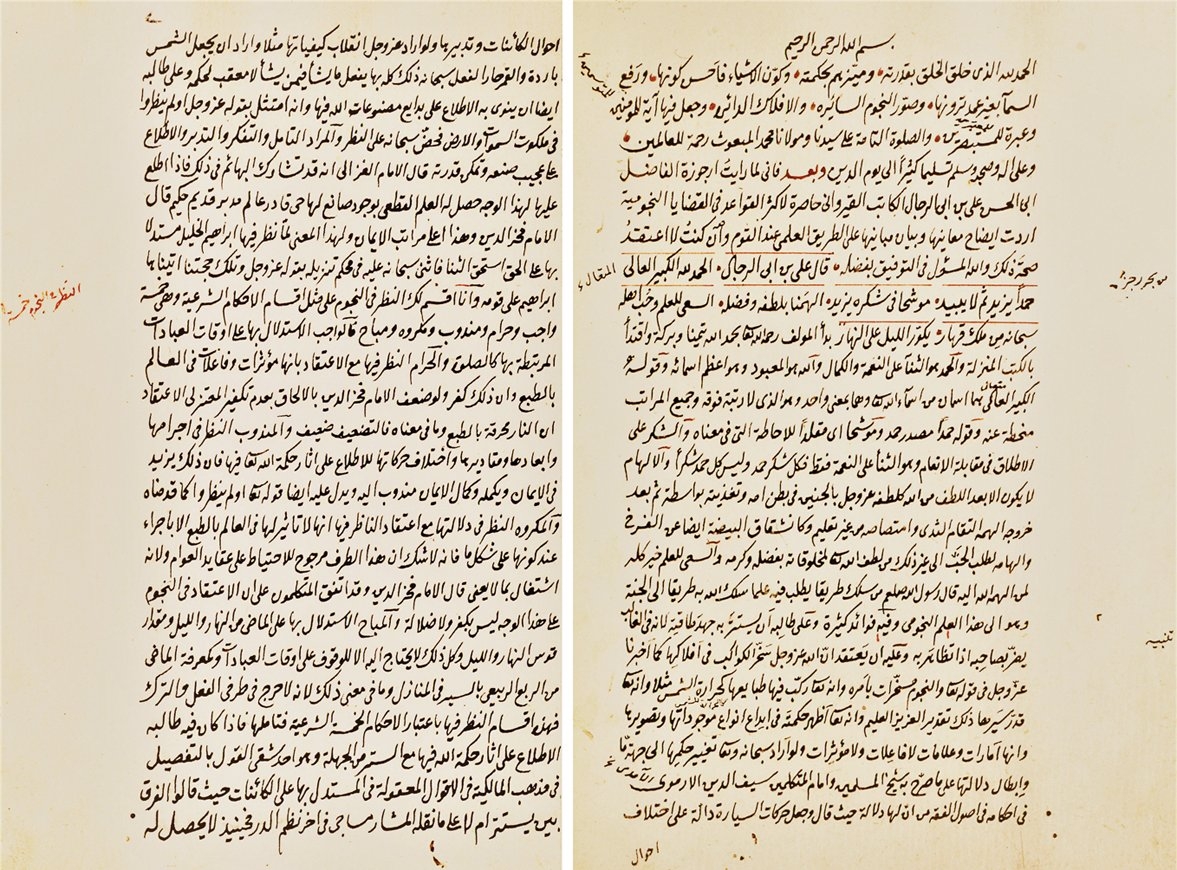 بسم الله الرحمن الرحيم
الحمد لله الذى خلق الخلق بقدرته وميزهم بحكمته وكوّن الاشياء فاحسن كونها ورفع
السمآ بغير عمد ترونها وصور النجوم السايره والافلاك الدائره وجعل فيها آية للموقنين
وعبرة للمستبصرين والصلوة التامة على سيدنا ومولانا محمد المبعوث رحمة للعالمين
وعلى اله وصحبه وسلم تسليما كثيراً الى يوم الدين وبعد فانى لما رايت ارجوزة الفاضل
ابى الحسن على بن ابى الرجال الكاتب القيروانى حاصرة لاكثر القواعد فى القضايا النجومية
اردت ايضاح معانيها وبيان مبانيها على الطريق العلمى عند القوم وان كنتُ لا اعتقدُ
صحة ذلك والله المسؤل فى التوفيق بفضله قال على بن ابى الرجال الحمد لله الكبير العالى
حمداً يزيد ثم لا يبيد موشحا فى شكره يزيد الهمنا بلطفه وفضله السعى للعلم وحب اهله
سبحانه من ملك قهار يكور الليل على النهار بدأ المولف رحمه الله بحمد الله تيمنا وبركة واقتدآ
بالكتب المنزلة والحمد هو الثنآ على النعمة والكمال والله هو المعبود وهو اعظم اسمائه وقوله
الكبير العالى هما اسمان من اسمآء الله وهما بمعنى واحد وهو الذى لا رتبة فوقه وجميع المراتب
منحطة عنه وقوله حمداً مصدر حمد وموشحا اى مقلداً للاحاطة التى فى معناه والشكر على
الاطلاق فى مقابلة الانعام وهو الثنآ على النعمة فقط فكل شكر حمد وليس كل حمد شكراً والالهام
لا يكون الا بعد اللطف من الله كلطفه عز وجل بالجنين فى بطن امه وتغذيته بواسطة ثم بعد
خروجه الهمه التقام الثدى وامتصاصه من غير تعليم وكانشقاق البيضة ايضا عن الفرخ
والهامه لطلب الحبّ الى غير ذلك من لطف الله بمخلوقاته بفضله وكرمه والسعى للعلم خير كله
لمن الهمه الله اليه قال رسول الله صلعم من سلك طريقا يطلب فيه علما سلك الله به طريقا الى الجنة
وهو الى هذا العلم النجومى وفيه فوائد كثيرة وعلى طالبه ان يستتر به جهد طاقته لانه فى الغالب
يضر بصاحبه اذا تظاهر به وعليه ان يعتقد ان الله عز وجل سخر الكواكب فى افلاكها كما اخبرنا
عز وجل فى قوله والنجوم مسخرات بامره وانه ركب فيها طبايعها كحرارة الشمس مثلا وانه
قدر سيرها ذلك تقدير العزيز العليم وانه اظهر حكمته فى ابداع انواع موجوداتها وتصويرها
وانها امارات وعلامات لا فاعلات ولا مؤثرات ولو اراد سبحانه تغيير حكمها الى جهة ما
وابطال دلالتها على ما صرح به شيخ المسلمين وامام المتكلمين سيف الدين الارموى
فى احكامه فى اصول الفقه من ان لها دلالة حيث قال وجعل حركات السيارة دالة على اختلاف
احوال
تنبيه
احوال الكائنات وتدبيرها ولو اراد عز وجل انقلاب كيفياتها مثلا واراد ان يجعل الشمس
باردة والقمر حارا لفعل سبحانه ذلك كله بها يفعل ما يشآء فيمن يشآ لا معقب لحكمه وعلى طالبه
ايضا ان ينوى به الاطلاع على بدايع مصنوعات الله فيها وانه امتثل بقوله عز وجل اولم ينظروا
فى ملكوت السموات والارض فحض سبحانه على النظر والمراد التامل والتفكر والتدبر والاطلاع
على عجيب صنعه وتمكن قدرته قال الامام الغزالى انه قد تشاركه البهائم فى ذلك فاذا اطلع
عليها لهذا الوجه حصل له العلم القطعى بوجود صانع لها حى قادر عالم مدبر قديم حكيم قال
الامام فخر الدين وهذا اعلى مراتب الايمان ولهذا المعنى لما نظر فيها ابراهيم الخليل مستدلا
بها على الحق استحق الثنا فاثنى سبحانه عليه فى محكم تنزيله بقوله عز وجل وتلك حجتنا اتيناها
ابراهيم على قومه وانا اقسم لك النظر فى النجوم على مثل اقسام الاحكام الشرعية وهى خمسة
واجب وحرام ومندوب ومكروه ومباح فالواجب الاستدلال بها على اوقات العبادات
المرتبطة بها كالصلوة والحرام النظر فيها مع الاعتقاد بانها مؤثرات وفاعلات فى العالم
بالطبع وان ذلك كفر ولو ضعف الامام فخر الدين بالالحاق بعدم تكفير المعتزلى الاعتقاد
ان النار محرقة بالطبع وما فى معناه فالتضعيف ضعيف والمندوب النظر فى اجرامها
وابعادها ومقاديرها واختلاف حركاتها للاطلاع على اثار حكمة الله فيها فان ذلك يزيد
فى الايمان ويكمله وكمال الايمان مندوب اليه ويدل عليه ايضا قوله اولم ينظروا كما قدمناه
والمكروه النظر فى دلالتها مع اعتقاد الناظر فيها انها لا تاثير لها فى العالم بالطبع الا باجراء
عند كونها على شكل ما فانه لا شك ان هذا الطرف مرجوح للاحتياط على عقايد العوام ولانه
اشتغال بما لا يعنى قال الامام فخر الدين وقد اتفق المتكلمون على ان الاعتقاد فى النجوم
على هذا الوجه ليس بكفر ولا ضلالة والمباح الاستدلال بها على الماضى من النهار والليل ومقدار
قوس النهار والليل وكل ذلك لا يحتاج اليه الا للوقوف على اوقات العبادات وكمعرفة الماضى
من الربع الربيعى بالسير فى المنازل وما فى معنى ذلك لانه لا حرج فى طرفى الفعل والترك
فهذه اقسام النظر فيها باعتبار الاحكام الخمسة الشرعية فتاملها فاذا كان فيه طالبه
الاطلاع على اثار حكمة الله فيها مع الستر من الجهلة وهو احد شقى القول بالتفصيل
فى مذهب المالكية فى الاقوال المعقولة فى المستدل بها على الكائنات حيث قالوا الفرق
بين يستتر ام لا على ما نقله المشار سا جى فى اخر نظم الدرر فحينئذ لا يحصل له
النظر فى النجوم خمسة